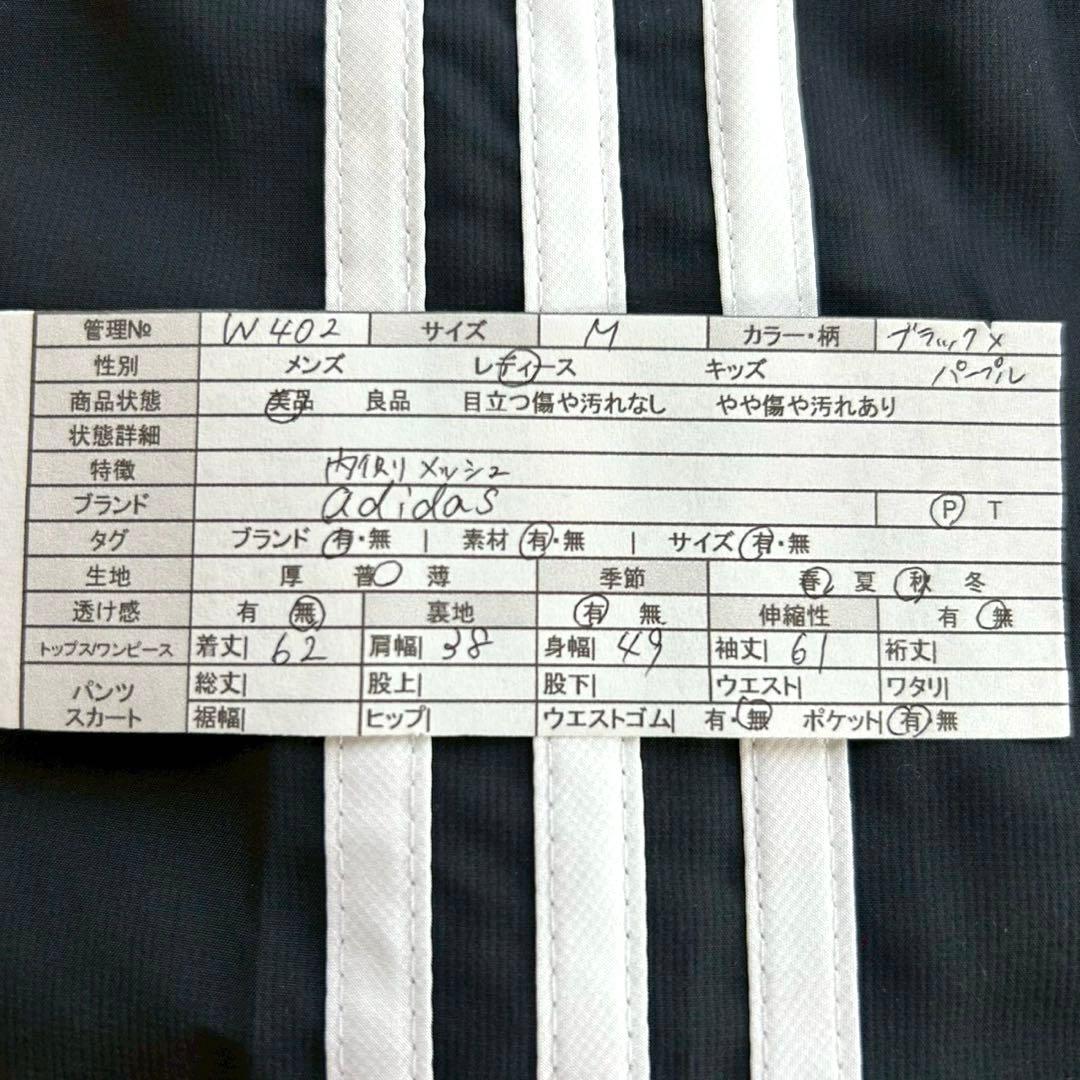 管理№ W402 サイズ M カラー・柄 ブラック×
パープル
性別 メンズ レディース キッズ
商品状態 美品 良品 目立つ傷や汚れなし やや傷や汚れあり
状態詳細
特徴 内側メッシュ
ブランド adidas P T
タグ ブランド 有・無 | 素材 有・無 | サイズ 有・無
生地 厚 普 薄 季節 春 夏 秋 冬
透け感 有 無 裏地 有 無 伸縮性 有 無
トップス/ワンピース 着丈| 62 肩幅| 38 身幅| 49 袖丈| 61 裄丈|
パンツ スカート 総丈| 股上| 股下| ウエスト| ワタリ|
裾幅| ヒップ| ウエストゴム| 有・無 ポケット| 有・無